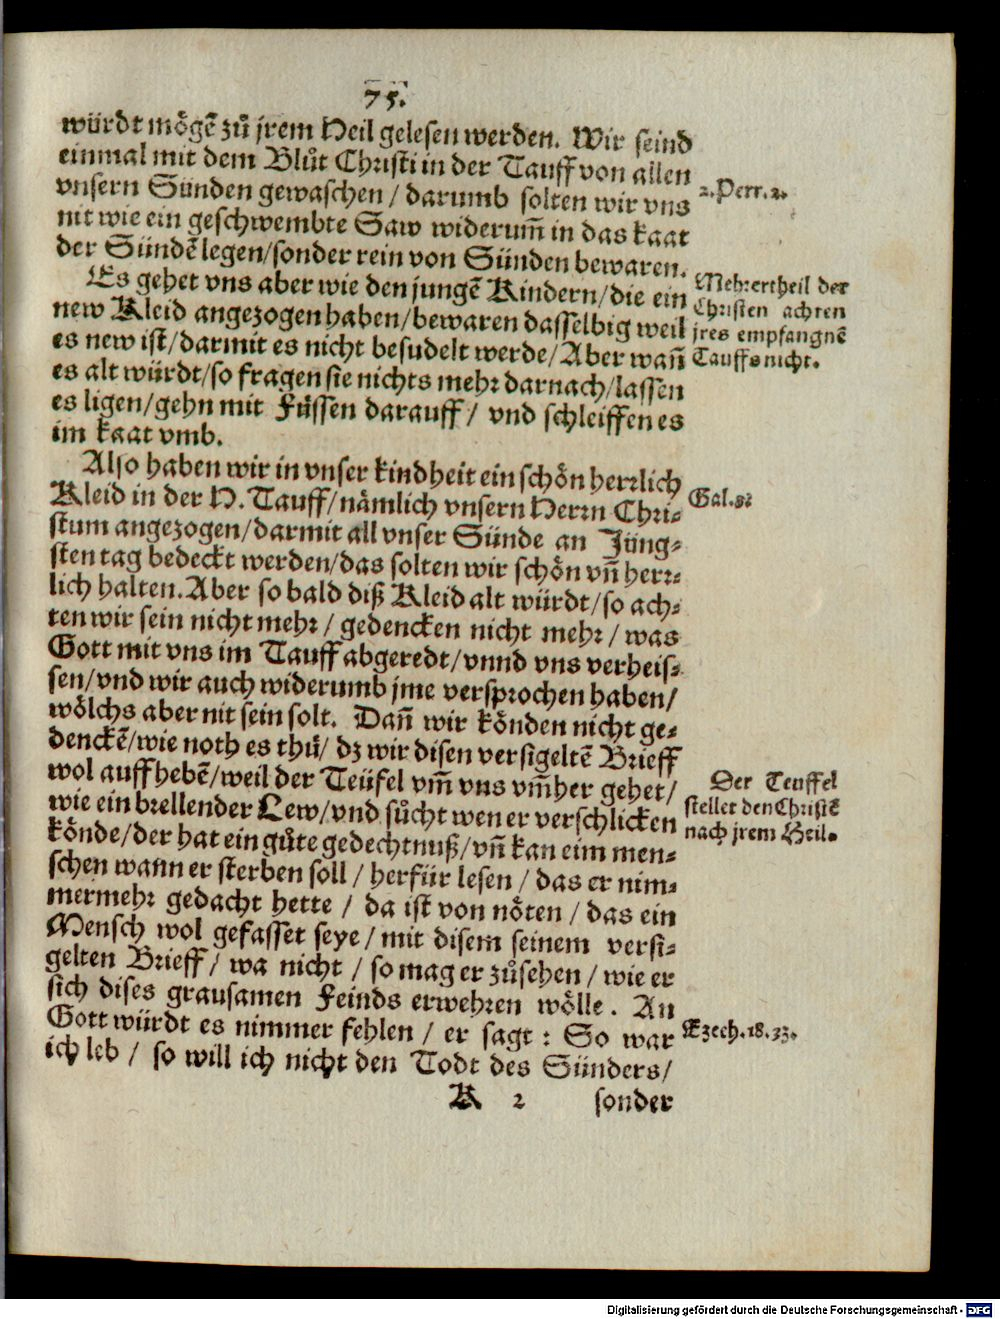 75.
würdt mögẽ zů jrem Heil gelesen werden. Wir seind
einmal mit dem Blůt Christi in der Tauff von allen
vnsern Sünden gewaschen / darumb solten wir vns
2. Petr. 2.
nit wie ein geschwembte Saw widerum̃ in das kaat
der Sündẽ legen/sonder rein von Sünden bewaren.
Es gehet vns aber wie den jungẽ Kindern/die ein
new Kleid angezogen haben/bewaren dasselbig weil
es new ist/darmit es nicht besudelt werde/Aber wañ
es alt würdt/so fragen sie nichts mehr darnach/lassen
es ligen/gehn mit Füssen darauff/ vnd schleiffen es
im kaat vmb.
Mehrertheil der
Christen achten
jres empfangnẽ
Tauffs nicht.
Also haben wir in vnser kindheit ein schön herrlich
Kleid in der H. Tauff/nämlich vnsern Herrn Chri-
Gal. 3.
stum angezogen/darmit all vnser Sünde an Jüng-
sten tag bedeckt werden/das solten wir schön vñ herr-
lich halten. Aber so bald diß Kleid alt würdt/so ach-
ten wir sein nicht mehr / gedencken nicht mehr / was
Gott mit vns im Tauff abgeredt/vnnd vns verheis-
sen/vnd wir auch widerumb jme versprochen haben/
wölchs aber nit sein solt. Dañ wir könden nicht ge-
denckẽ/wie noth es thů/ dz wir disen versigeltẽ Brieff
wol auffhebẽ/weil der Teüfel vm̃ vns vm̃her gehet/
wie ein brellender Lew/vnd sůcht wen er verschlicken
könde/der hat ein gůte gedechtnuß/vñ kan eim men-
Der Teuffel
stellet den Christẽ
nach jrem Heil.
schen wann er sterben soll / herfür lesen / das er nim-
mermehr gedacht hette / da ist von nöten / das ein
Mensch wol gefasset seye / mit disem seinem versi-
gelten Brieff / wa nicht / so mag er zůsehen / wie er
sich dises grausamen Feinds erwehren wölle. An
Gott würdt es nimmer fehlen / er sagt : So war
Ezech. 18. 33.
ich leb / so will ich nicht den Todt des Sünders/
K 2 sonder
Digitalisierung gefördert durch die Deutsche Forschungsgemeinschaft - DFG